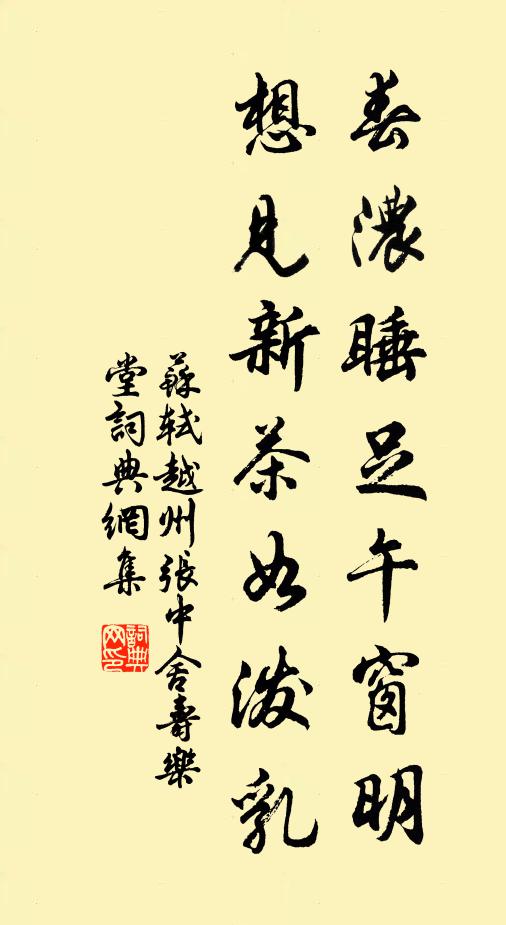 春濃睡足午窗明
想見新茶如潑乳
蘇軾越州張中舍壽樂
堂詞典網集
詞典
网印